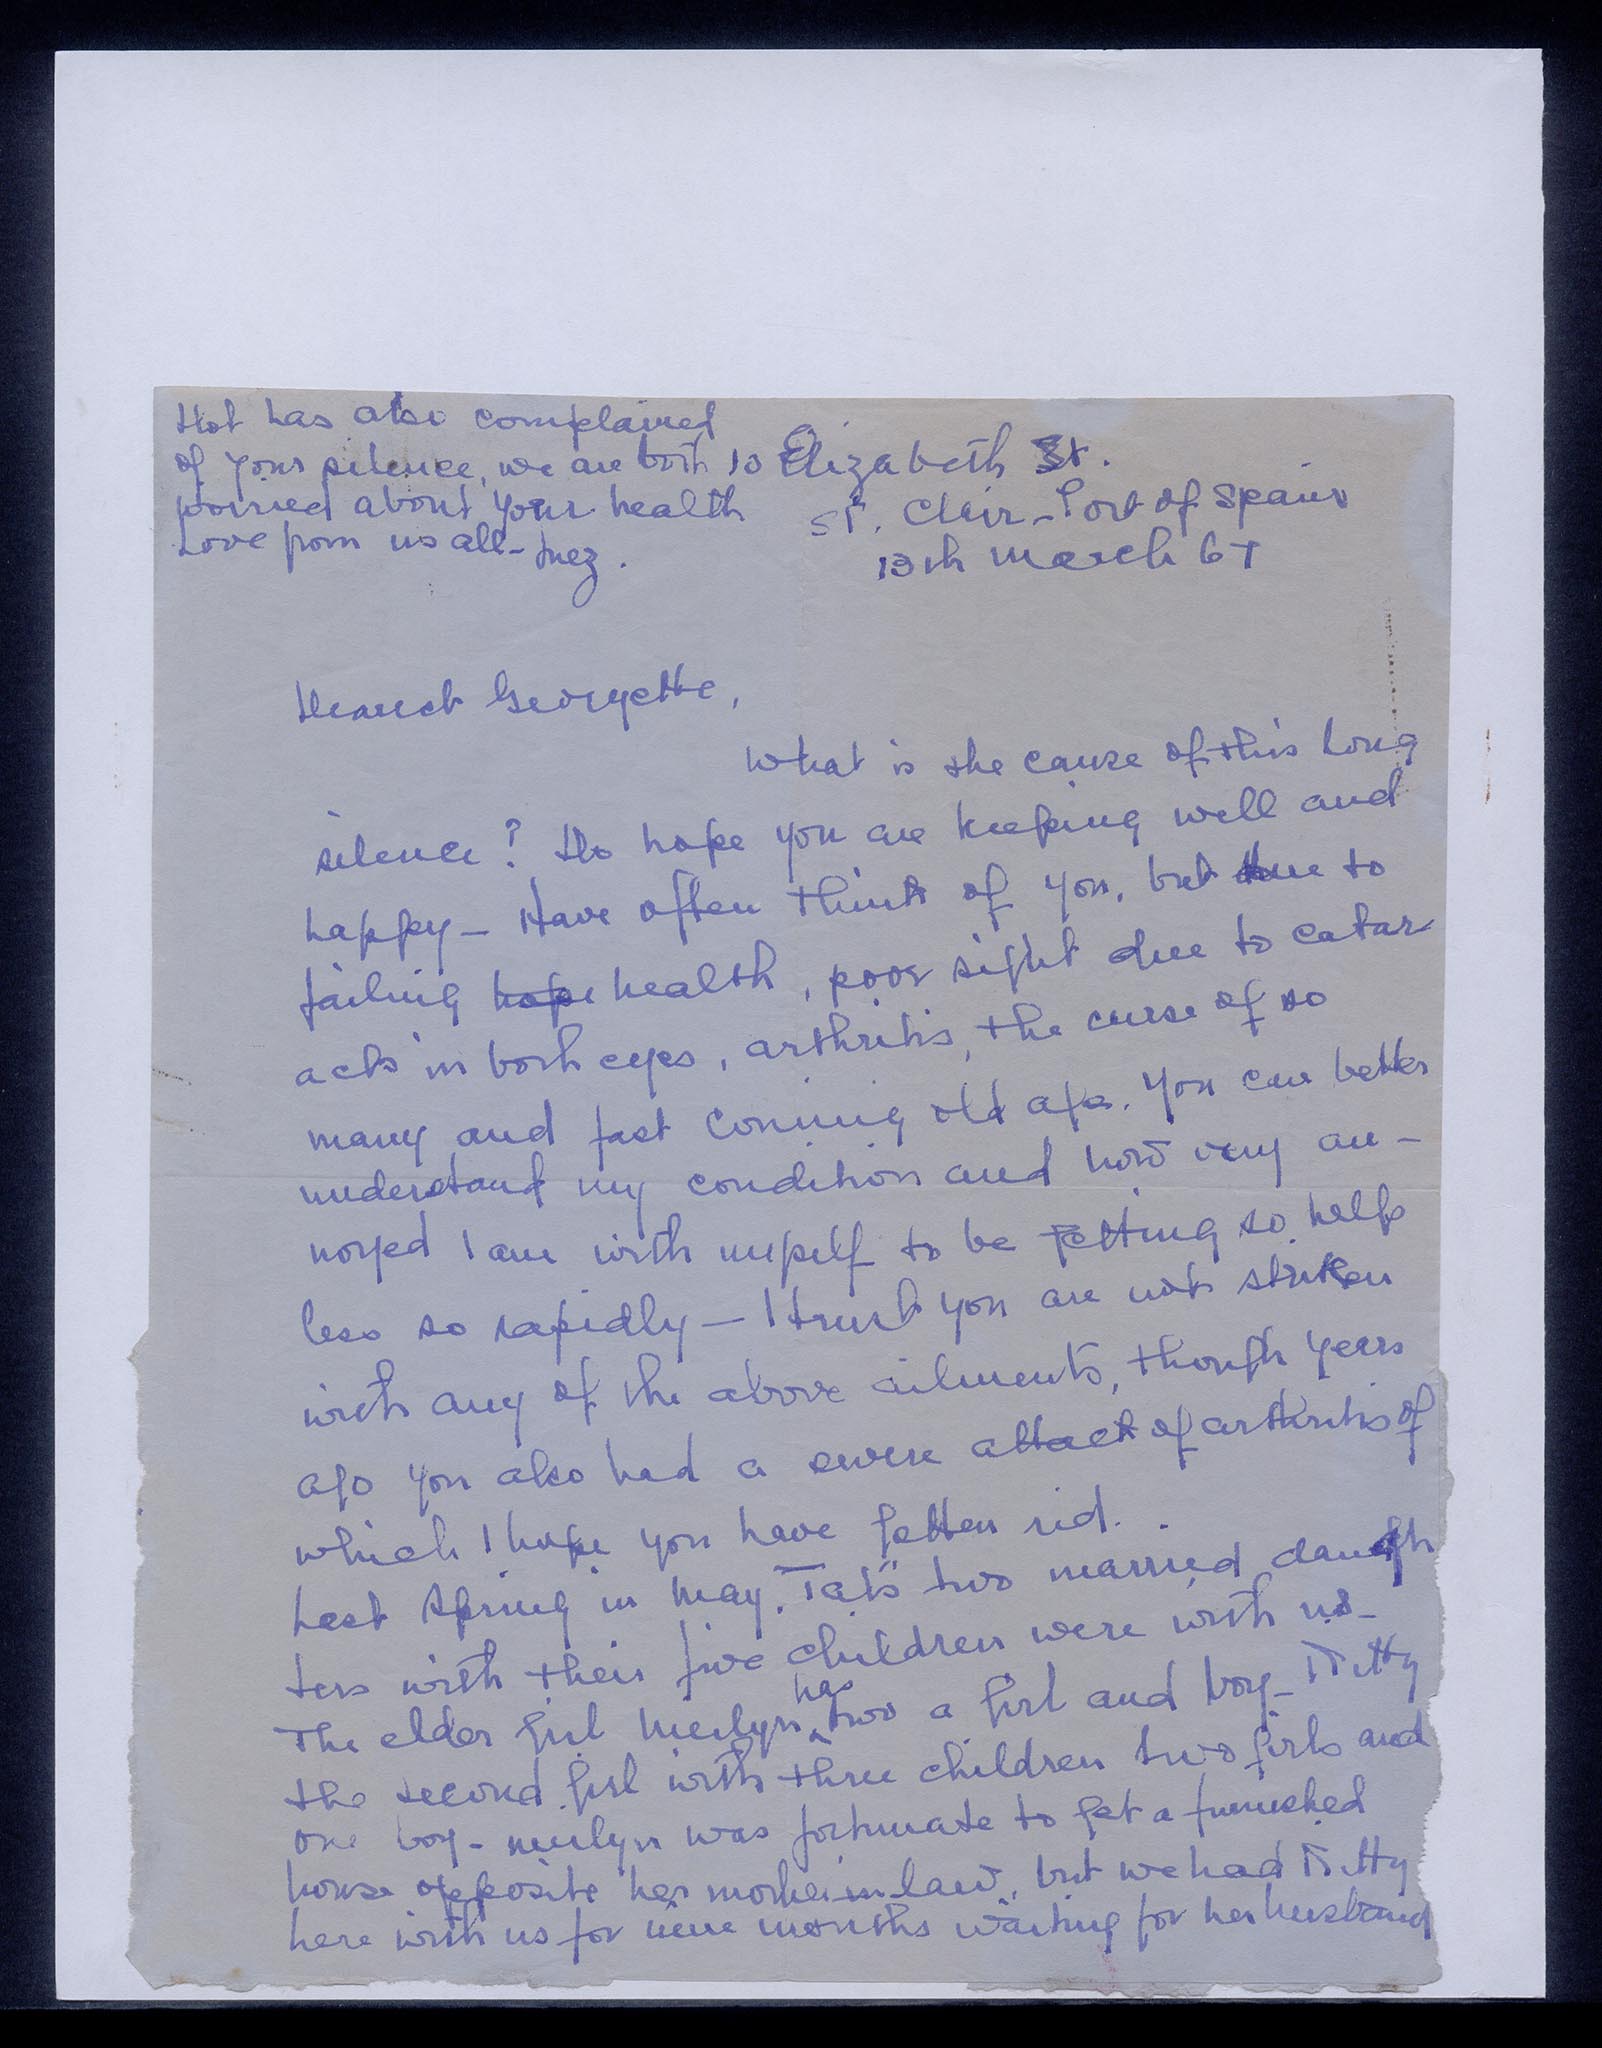 Dot has also complained
of your silence, we are both
worried about your health
Love from us all - Inez.
10 Elizabeth St.
St. Clair - Port of Spain
13th March 67
Dearest Georgette,
What is the cause of this long
silence? Do hope you are keeping well and
happy - Have often think of you, but due to
failing hope health, poor sight due to catar
acts in both eyes, arthritis, the curse of so
many and fast coming old age. You can better
understand my condition and how very an -
noyed I am with myself to be getting so help
less so rapidly - I trust you are not striken
with any of the above ailments, though years
ago you also had a severe attack of arthritis of
which I hope you have gotten rid.
Last Spring in May. Tat's two married daugh
ters with their five children were with us -
The elder girl Merlyn has two a girl and boy -
the second girl with three children two girls and
one boy - Merlyn was fortunate to get a furnished
house opposite her mother in law, but we had
here with us for nine months waiting for her husband